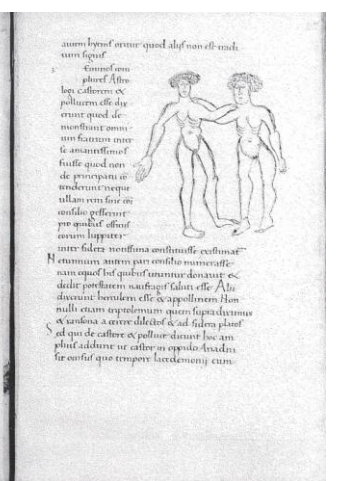 autem hyems oritur quod alijs non est tradi
tum signis
Geminos com
plures Astro
logi castorem &
pollucem esse dix
erunt quod de
monstrant omni
um fratrum inter
se amantissimos
fuisse quod non
de principatu cō
tenderunt neque
ullam rem sine cōi
consilio gesserint
pro quibus officiis
eorum Iuppiter
inter sidera notissima constituisse existimat᷑
Neptunum autem pari consilio numerasse
nam equos his quibus utuntur donavit &
dedit potestatem naufragis saluti esse Alii
dixerunt herculem esse & appollinem Non
nulli etiam triptolemum quem supra diximus
& iansona a cerere dilectos & ad sidera platos
Sed qui de castore & polluce dicunt hoc am
plius addunt ut castor in oppido
sit occisus quo tempore lacedemonij cum